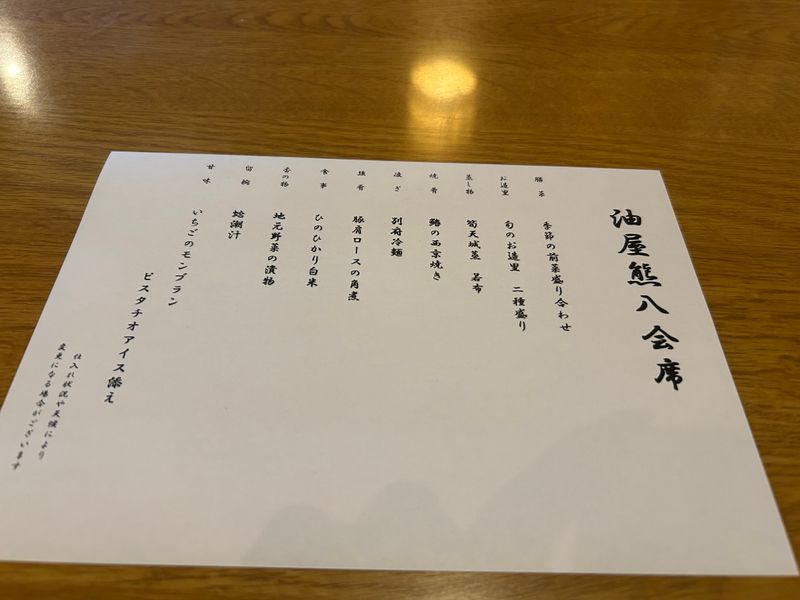 油屋熊八会席
膳菜 季節の前菜盛り合わせ
お造里 旬のお造里 二種盛り
蒸し物 筍天城蒸 若布
焼肴 鰆の西京焼き
凌ぎ 別府冷麺
強肴 豚肩ロースの角煮
食事 ひのひかり白米
香の物 地元野菜の漬物
留椀 蛤潮汁
甘味 いちごのモンブラン
ピスタチオアイス添え
仕入れ状況や天候により
変更になる場合がございます